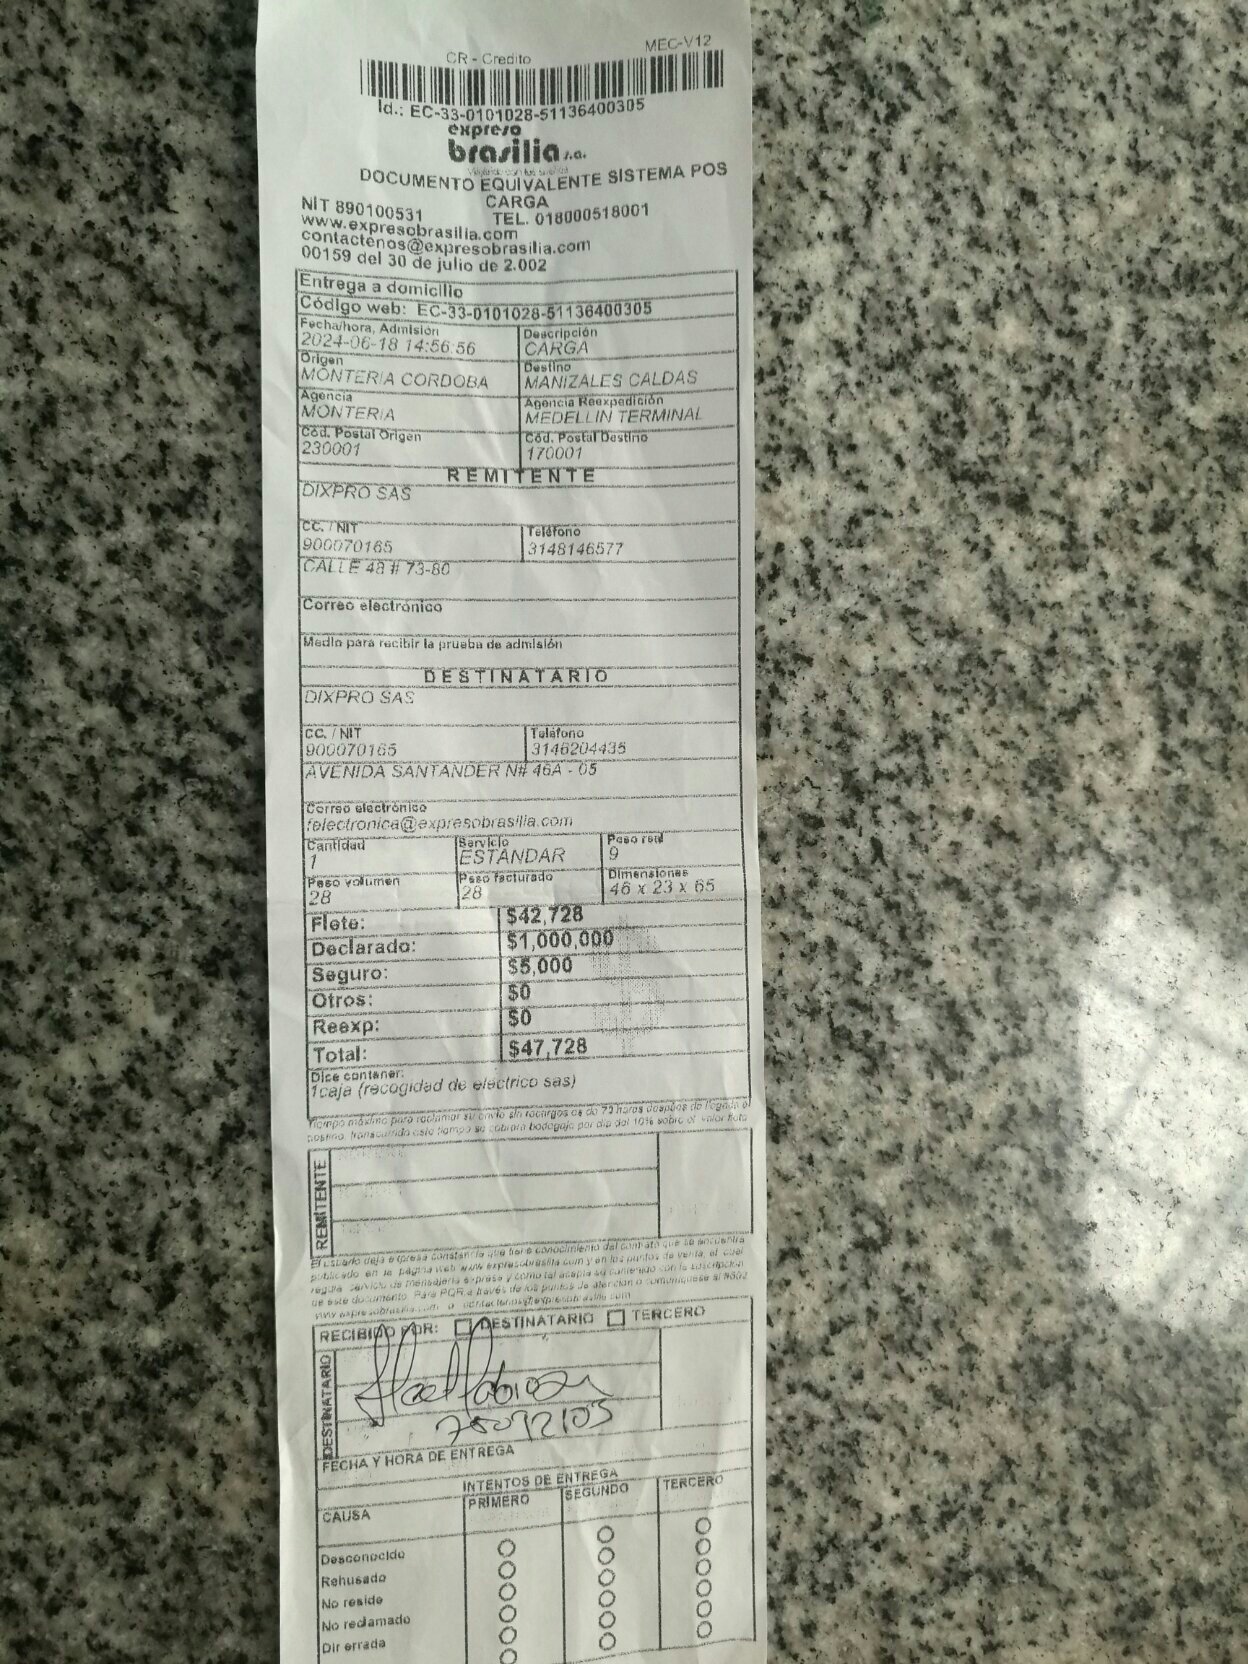 MEC-V12
CR - Credito
Id.: EC-33-0101028-51136400305
expreso
brasilia s.a.
DOCUMENTO EQUIVALENTE SISTEMA POS
CARGA
NIT 890100531 TEL. 018000518001
www.expresobrasilia.com
contactenos@expresobrasilia.com
00159 del 30 de julio de 2.002
Entrega a domicilio
Código web: EC-33-0101028-51136400305
Fecha/hora, Admisión Descripción
2024-06-18 14:56:56 CARGA
Origen Destino
MONTERIA CORDOBA MANIZALES CALDAS
Agencia Agencia Reexpedición
MONTERIA MEDELLIN TERMINAL
Cód. Postal Origen Cód. Postal Destino
230001 170001
REMITENTE
DIXPRO SAS
CC. / NIT Teléfono
900070165 3148146577
CALLE 48 # 73-80
Correo electrónico
Medio para recibir la prueba de admisión
DESTINATARIO
DIXPRO SAS
CC. / NIT Teléfono
900070165 3146204435
AVENIDA SANTANDER N# 46A - 05
Correo electrónico
felectronica@expresobrasilia.com
Cantidad Servicio Peso real
1 ESTANDAR 9
Peso volumen Peso facturado Dimensiones
28 28 46 x 23 x 65
Flete: $42,728
Declarado: $1,000,000
Seguro: $5,000
Otros: $0
Reexp: $0
Total: $47,728
Dice contener:
1caja (recogidad de electrico sas)
Tiempo máximo para reclamar su envío sin recargos es de 72 horas después de llegada a
destino, transcurrido este tiempo se cobrara bodegaje por día del 10% sobre el valor flete
REMITENTE
El usuario deja expresa constancia que tiene conocimiento del contrato que se encuentra
publicado en la página web www.expresobrasilia.com y en los puntos de venta, el cual
regula servicio de mensajería expresa y como tal acepta su contenido con la suscripción
de este documento. Para PQR a través de los puntos de atención o comuníquese al
www.expresobrasilia.com o contactenos@expresobrasilia.com
RECIBIDO POR: DESTINATARIO TERCERO
DESTINATARIO
FECHA Y HORA DE ENTREGA
INTENTOS DE ENTREGA
CAUSA PRIMERO SEGUNDO TERCERO
Desconocido
Rehusado
No reside
No reclamado
Dir errada